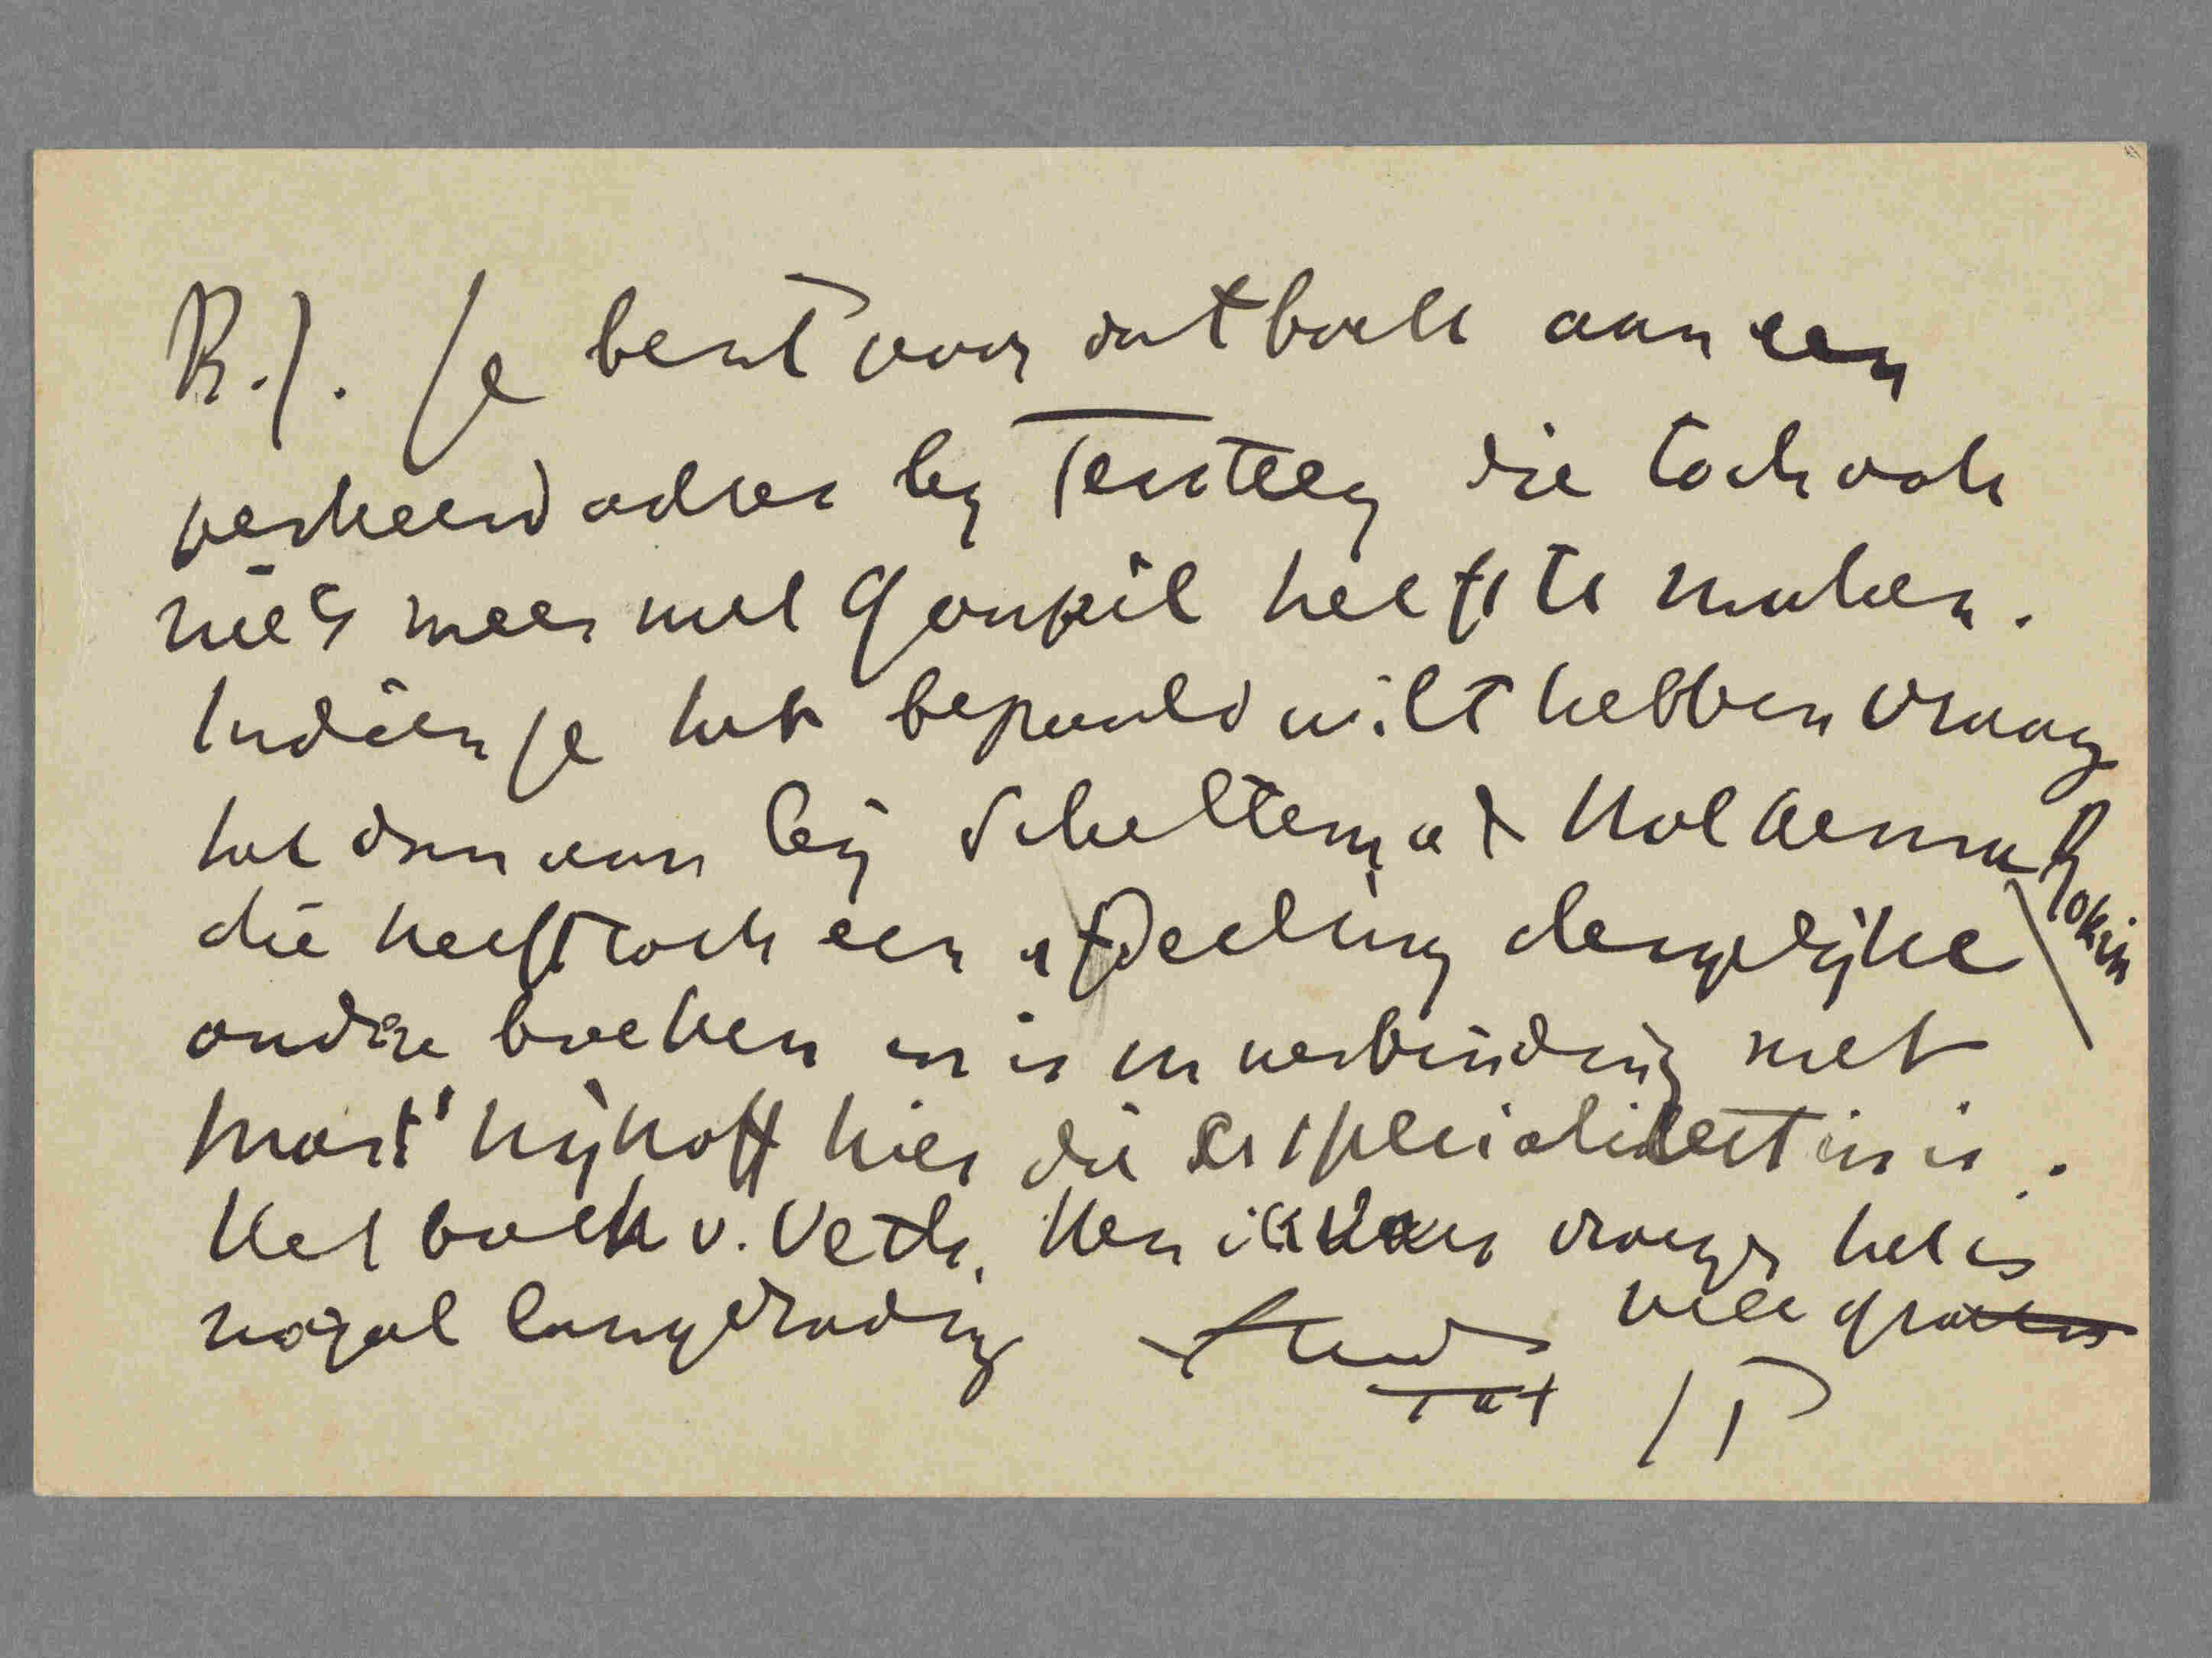 B.J. Je bent voor dat boek aan een
verkeerd adres by Tersteeg die toch ook
niets meer met Goupil heeft te maken.
Indien je het bepaald wilt hebben vraag
het dan aan bij Scheltema & Holkema Rokin
die heeft toch een afdeeling dergelijke
oudere boeken en is in verbinding met
Mart. Nijhoff hier die er specialiteit in is.
Het boek v. Veth. Ken ik het is
nogal langdradig veele groeten